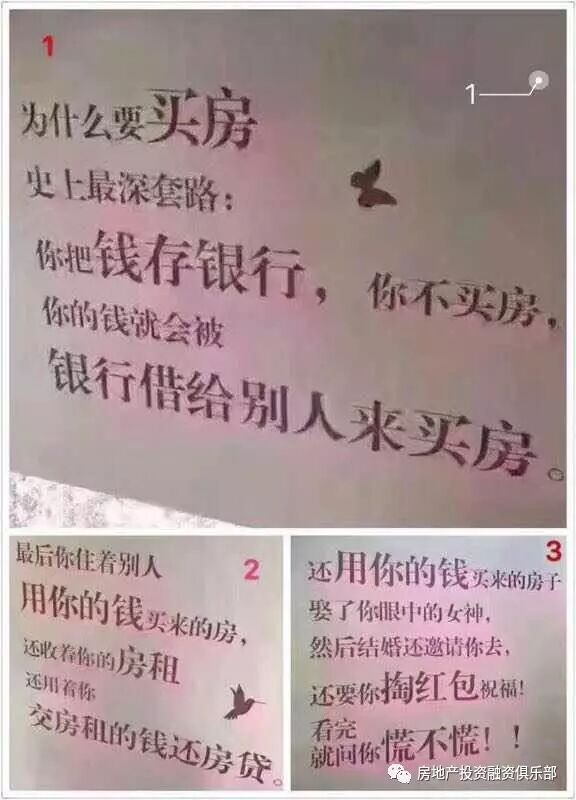 1
1
为什么要买房
史上最深套路：
你把钱存银行，你不买房，
你的钱就会被
银行借给别人来买房。
2
最后你住着别人
用你的钱买来的房，
还收着你的房租
还用着你
交房租的钱还房贷。
3
还用你的钱买来的房子
娶了你眼中的女神，
然后结婚还邀请你去，
还要你掏红包祝福！
看完
就问你慌不慌！！
房地产投资融资俱乐部